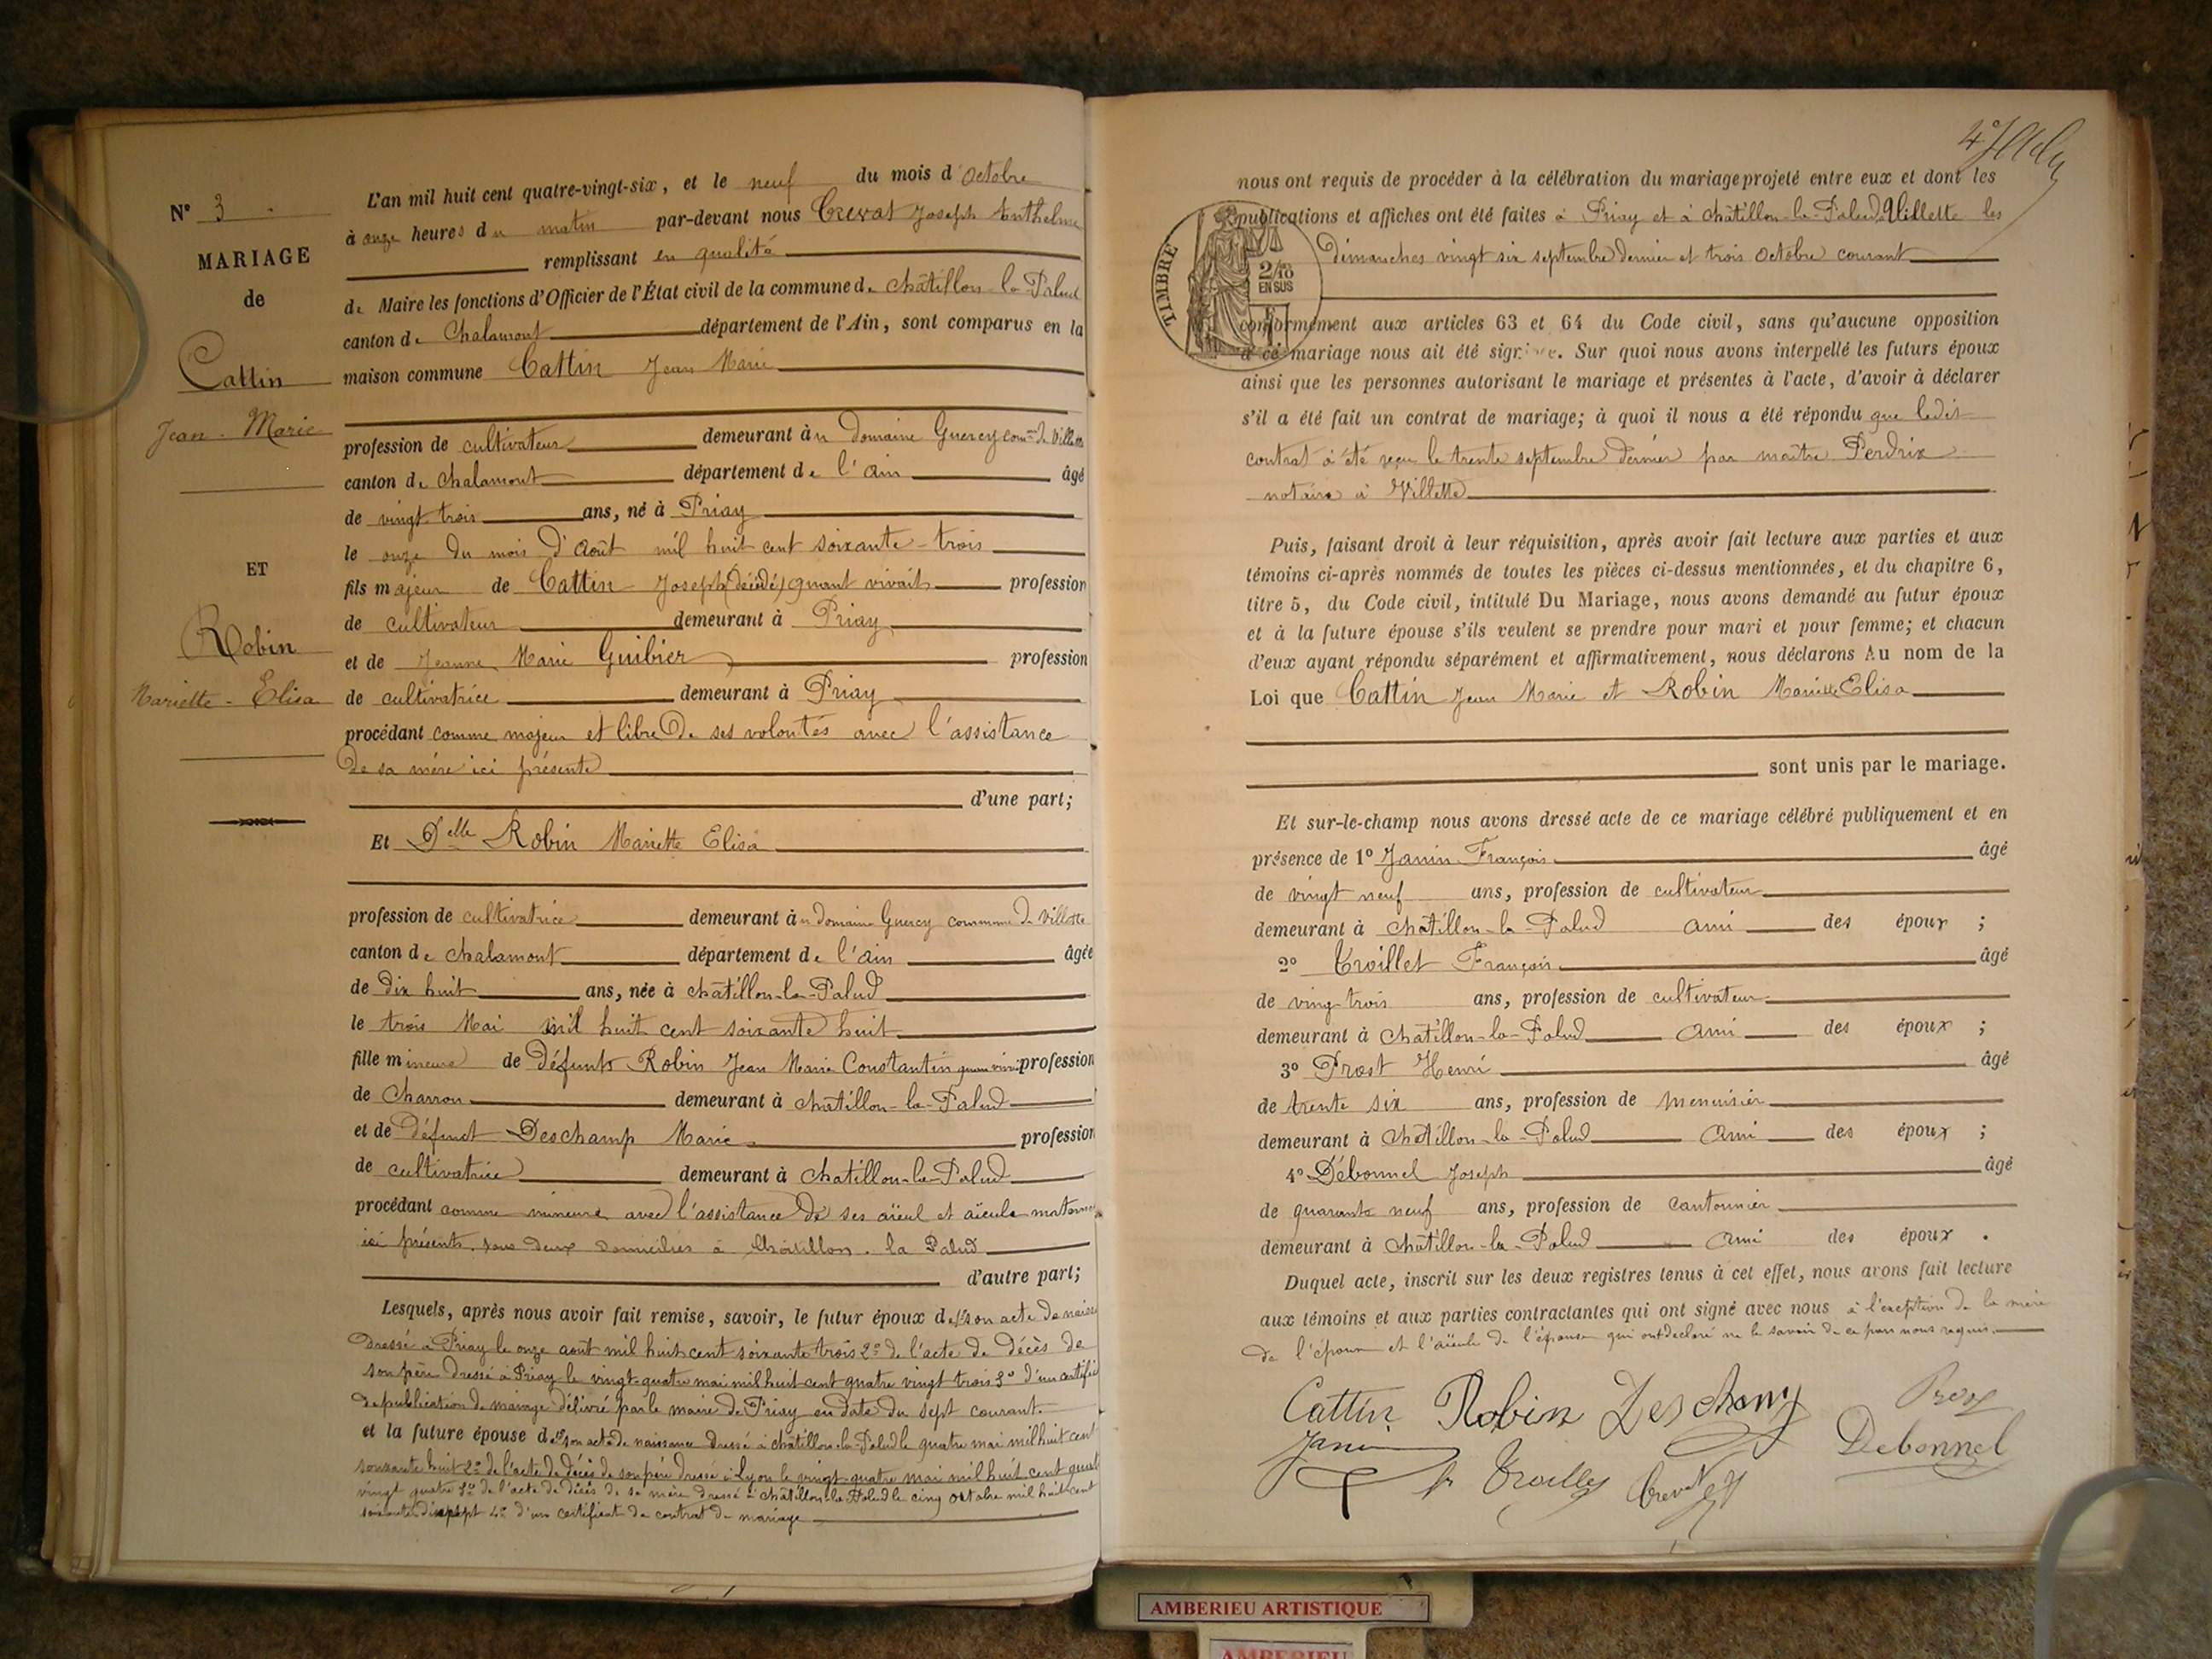 N° 3
MARIAGE
de
Cattin
Jean-Marie
ET
Robin
Mariette-Elisa
L'an mil huit cent quatre-vingt-six, et le neuf du mois d'Octobre
à onze heures du matin par-devant nous Crevat Joseph Anthelme
remplissant en qualité
de Maire les fonctions d'Officier de l'État civil de la commune de Châtillon-la-Palud
canton de Chalamont département de l'Ain, sont comparus en la
maison commune Cattin Jean Marie
profession de cultivateur demeurant à Domaine Guercy com.ne de Villette
canton de Chalamont département de l'ain âgé
de vingt-trois ans, né à Priay
le onze du mois d'Août mil huit cent soixante-trois
fils majeur de Cattin Joseph (décédé) quant vivait profession
de cultivateur demeurant à Priay
et de Jeanne Marie Guibier profession
de cultivatrice demeurant à Priay
procédant comme majeur et libre de ses volontés avec l'assistance
de sa mère ici présente
d'une part;
Et Delle Robin Mariette Elisa
profession de cultivatrice demeurant àu domaine Guercy commune de Villette
canton de chalamont département de l'ain âgée
de dix huit ans, née à châtillon-la-Palud
le trois Mai mil huit cent soixante huit
fille mineure de défunts Robin Jean Marie Constantin profession
de Charron demeurant à chatillon-la-Palud
et de défunct Deschamp Marie profession
de cultivatrice demeurant à chatillon-la-Palud
procédant comme mineure avec l'assistance de ses aïeul et aïeule maternels
ici présents tous deux domiciliés à Châtillon-la Palud
d'autre part;
Lesquels, après nous avoir fait remise, savoir, le futur époux de 1° son acte de
dressé à Priay le onze août mil huit cent soixante trois 2° de l'acte de décès de
son père dressé à Priay le vingt quatre mai mil huit cent quatre vingt trois 3° d'un certificat
de publication de mariage délivré par le maire de Priay en date du sept courant.
et la future épouse de 1° son acte de naissance dressé à châtillon-la-Palud le quatre mai mil huit cent
soixante huit 2° de l'acte de décès de son père dressé à Lyon le vingt quatre mai mil huit cent quatre
vingt quatre 3° de l'acte de décès de sa mère dressé à châtillon-la-Palud le cinq octobre mil huit cent
soixante dix sept 4° d'un certificat de contrat de mariage
nous ont requis de procéder à la célébration du mariage projeté entre eux et dont les
publications et affiches ont été faites à Priay et à châtillon-la-Palud, Villette les
dimanches vingt six septembre dernier et trois octobre courant
TIMBRE
2/10
EN SUS
conformément aux articles 63 et 64 du Code civil, sans qu'aucune opposition
à ce mariage nous ait été signifiée. Sur quoi nous avons interpellé les futurs époux
ainsi que les personnes autorisant le mariage et présentes à l'acte, d'avoir à déclarer
s'il a été fait un contrat de mariage; à quoi il nous a été répondu que ledit
contrat à été reçu le trente septembre dernier par maître Perdrix
notaire à Villette
Puis, faisant droit à leur réquisition, après avoir fait lecture aux parties et aux
témoins ci-après nommés de toutes les pièces ci-dessus mentionnées, et du chapitre 6,
titre 5, du Code civil, intitulé Du Mariage, nous avons demandé au futur époux
et à la future épouse s'ils veulent se prendre pour mari et pour femme; et chacun
d'eux ayant répondu séparément et affirmativement, nous déclarons Au nom de la
Loi que Cattin Jean Marie et Robin Mariette Elisa
sont unis par le mariage.
Et sur-le-champ nous avons dressé acte de ce mariage célébré publiquement et en
présence de 1° Janin François âgé
de vingt neuf ans, profession de cultivateur
demeurant à châtillon-la-Palud ami des époux ;
2° Troillet François âgé
de ving-trois ans, profession de cultivateur
demeurant à chatillon-la-Palud ami des époux ;
3° Prost Henri âgé
de trente six ans, profession de menuisier
demeurant à Châtillon-la-Palud ami des époux ;
4° Débonnel Joseph âgé
de quarante neuf ans, profession de cantonnier
demeurant à châtillon-la-Palud ami des époux .
Duquel acte, inscrit sur les deux registres tenus à cet effet, nous avons fait lecture
aux témoins et aux parties contractantes qui ont signé avec nous à l'exception de la mère
de l'époux et l'aïeule de l'épouse qui ont déclaré ne le savoir de ce par nous requis.
Cattin Robin Deschamp
Debonnel
AMBERIEU ARTISTIQUE
AMBERIEU